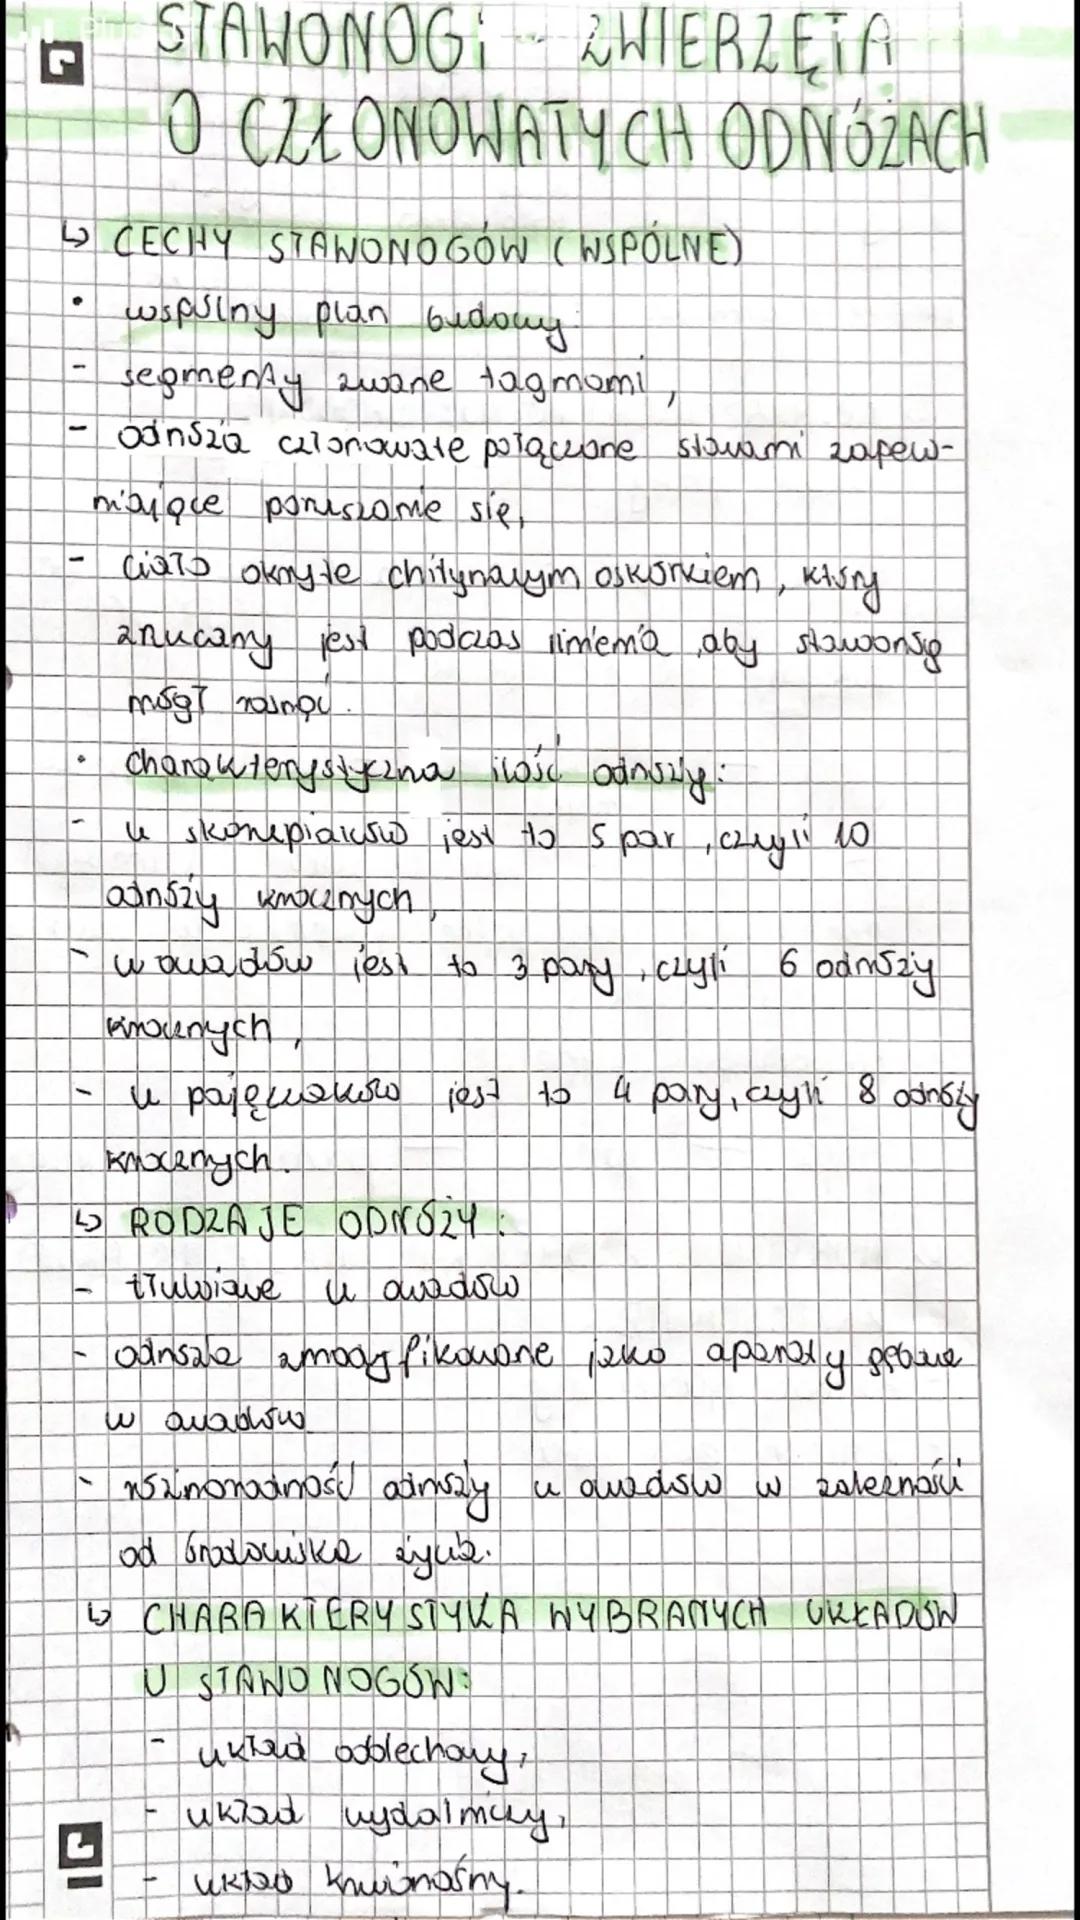 STAWONOGI - ZWIERZĘTA
O CZŁONOWATYCH ODNÓŻACH
↳ CECHY STAWONOGÓW (WSPÓLNE)
• wspólny plan budowy:
- segmenty zwane tagmami,
- odnóża członowate połączone stawami zapew-
niające poruszanie się,
- ciało okryte chitynowym oskórkiem, który
zrzucany jest podczas linienia, aby stawonóg
mógł rosnąć.
• charakterystyczna ilość odnóży:
- u skorupiaków jest to 5 par, czyli 10
odnóży krocznych,
- u owadów jest to 3 pary, czyli 6 odnóży
krocznych,
- u pajęczaków jest to 4 pary, czyli 8 odnóży
krocznych.
↳ RODZAJE ODNÓŻY:
- tułowiowe u owadów
- odnóża zmodyfikowane jako aparaty gębowe
u owadów
- różnorodność odnóży u owadów w zależności
od środowiska życia.
↳ CHARAKTERYSTYKA WYBRANYCH UKŁADÓW
U STAWONOGÓW:
- układ oddechowy,
- układ wydalniczy,
- układ krwionośny.